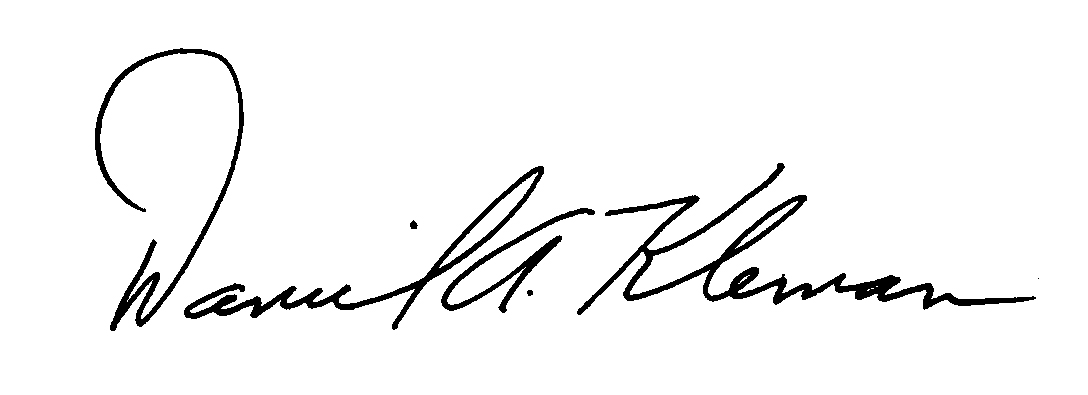 Daniel A. Kleman